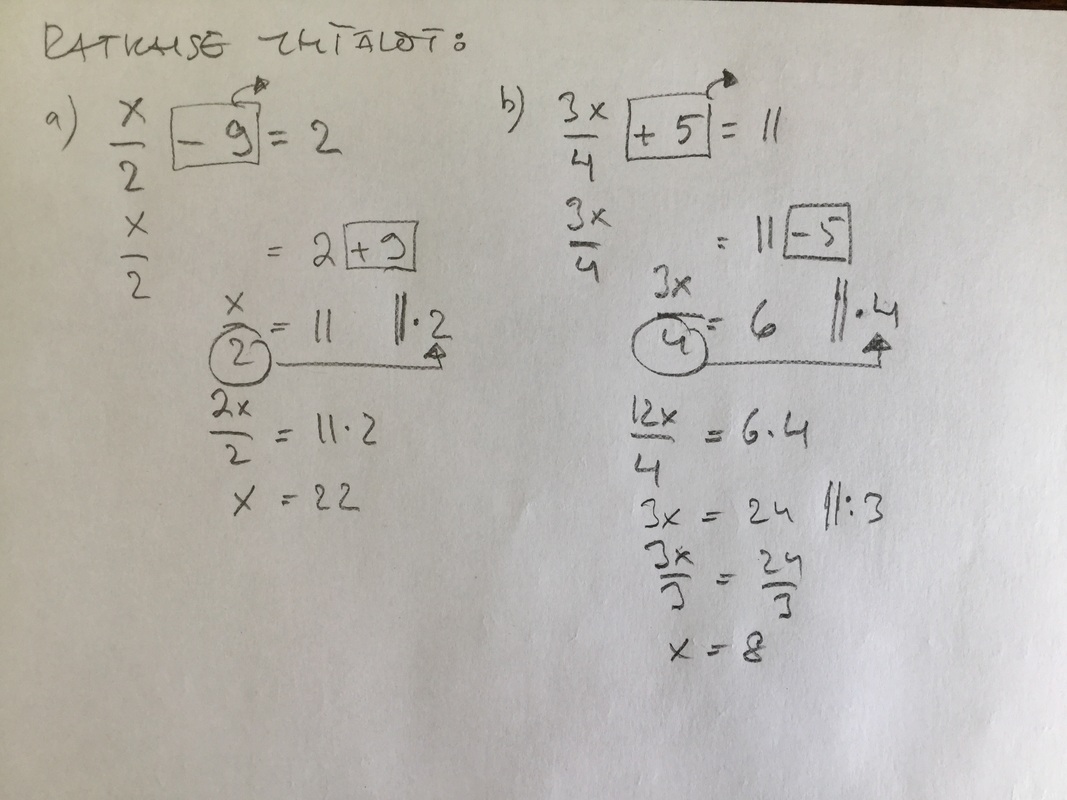 RATKAISE YHTÄLÖT:
a) x/2 - 9 = 2
x/2 = 2 + 9
x/2 = 11 ||·2
2x/2 = 11·2
x = 22
b) 3x/4 + 5 = 11
3x/4 = 11 - 5
3x/4 = 6 ||·4
12x/4 = 6·4
3x = 24 ||:3
3x/3 = 24/3
x = 8